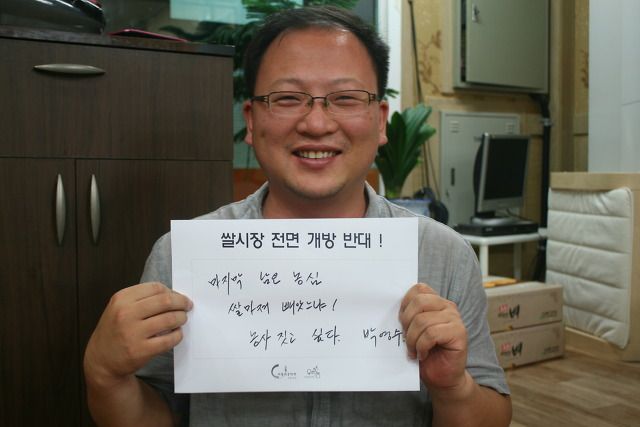 쌀시장 전면 개방 반대 !
마지막 남은 농심
쌀마저 빼앗느냐!
농사 짓고 싶다. 박영수